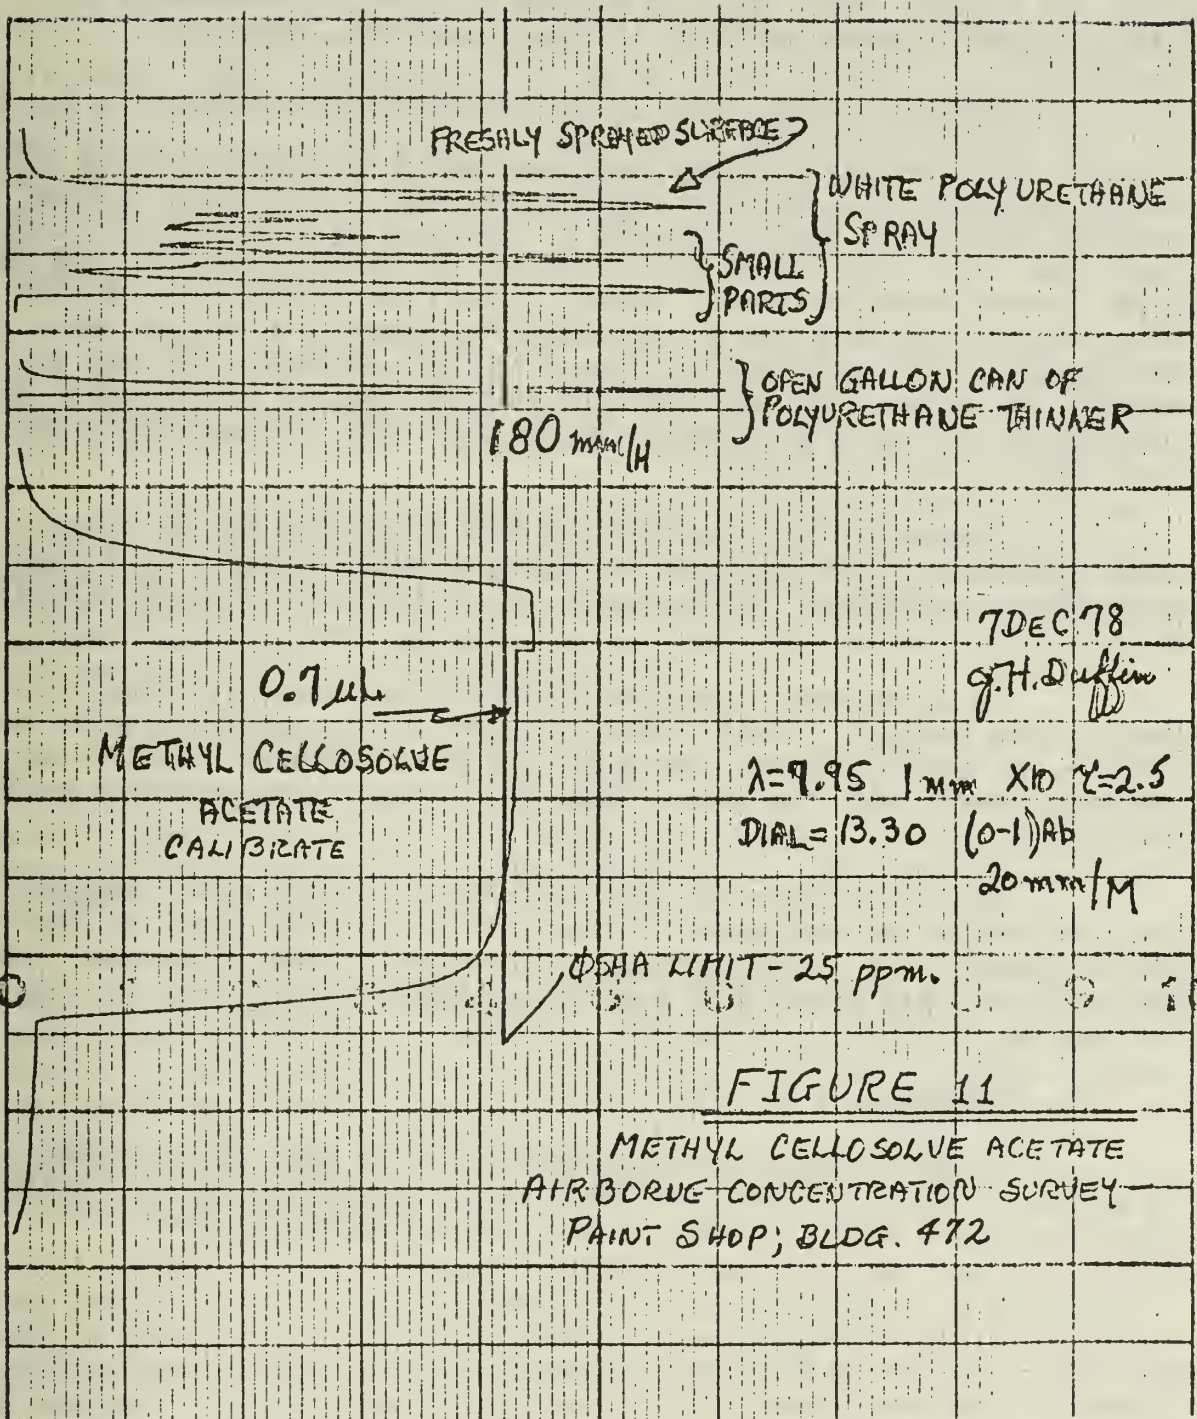 FRESHLY SPRAYED SURFACE
WHITE POLYURETHANE
SPRAY
SMALL
PARTS
OPEN GALLON CAN OF
POLYURETHANE THINNER
180 mm/H
7 DEC 78
G.H. Duffin
0.7 µL
METHYL CELLOSOLVE
ACETATE
CALIBRATE
λ=7.95 1 mm X10 τ=2.5
DIAL = 13.30 (0-1)Ab
20 mm/M
OSHA LIMIT - 25 ppm.
FIGURE 11
METHYL CELLOSOLVE ACETATE
AIRBORNE CONCENTRATION SURVEY
PAINT SHOP; BLDG. 472